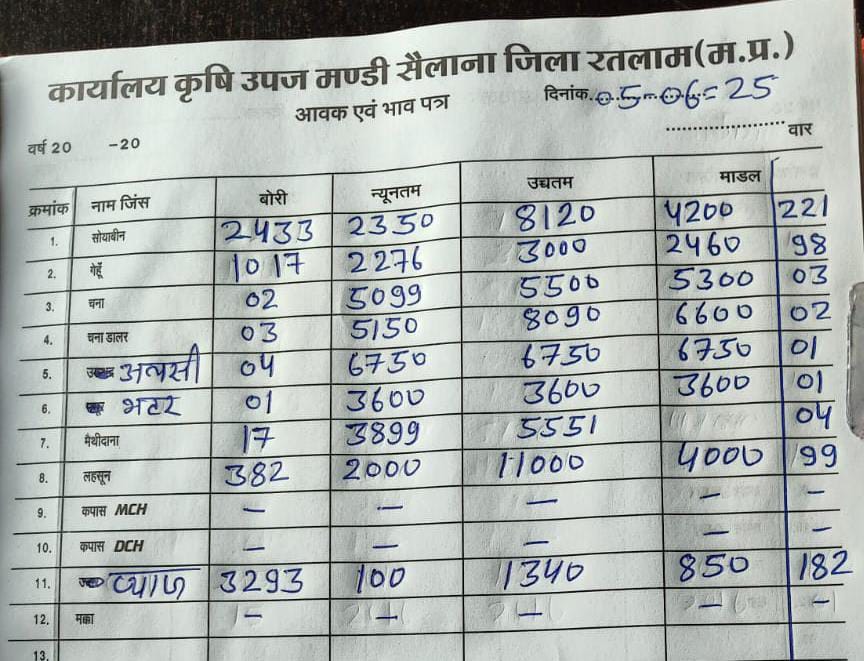 कार्यालय कृषि उपज मण्डी सैलाना जिला रतलाम(म.प्र.)
आवक एवं भाव पत्र दिनांक 05-06=25
वर्ष 20 -20 वार
क्रमांक नाम जिंस बोरी न्यूनतम उच्चतम माडल
1. सोयाबीन 2433 2350 8120 4200 221
2. गेहूँ 1017 2276 3000 2460 98
3. चना 02 5099 5500 5300 03
4. चना डालर 03 5150 8090 6600 02
5. अलसी 04 6750 6750 6750 01
6. मटर 01 3600 3600 3600 01
7. मैथीदाना 17 3899 5551 04
8. लहसून 382 2000 11000 4000 99
9. कपास MCH - - - - -
10. कपास DCH - - - - -
11. प्याज 3293 100 1340 850 182
12. मक्का - - - - -
13.